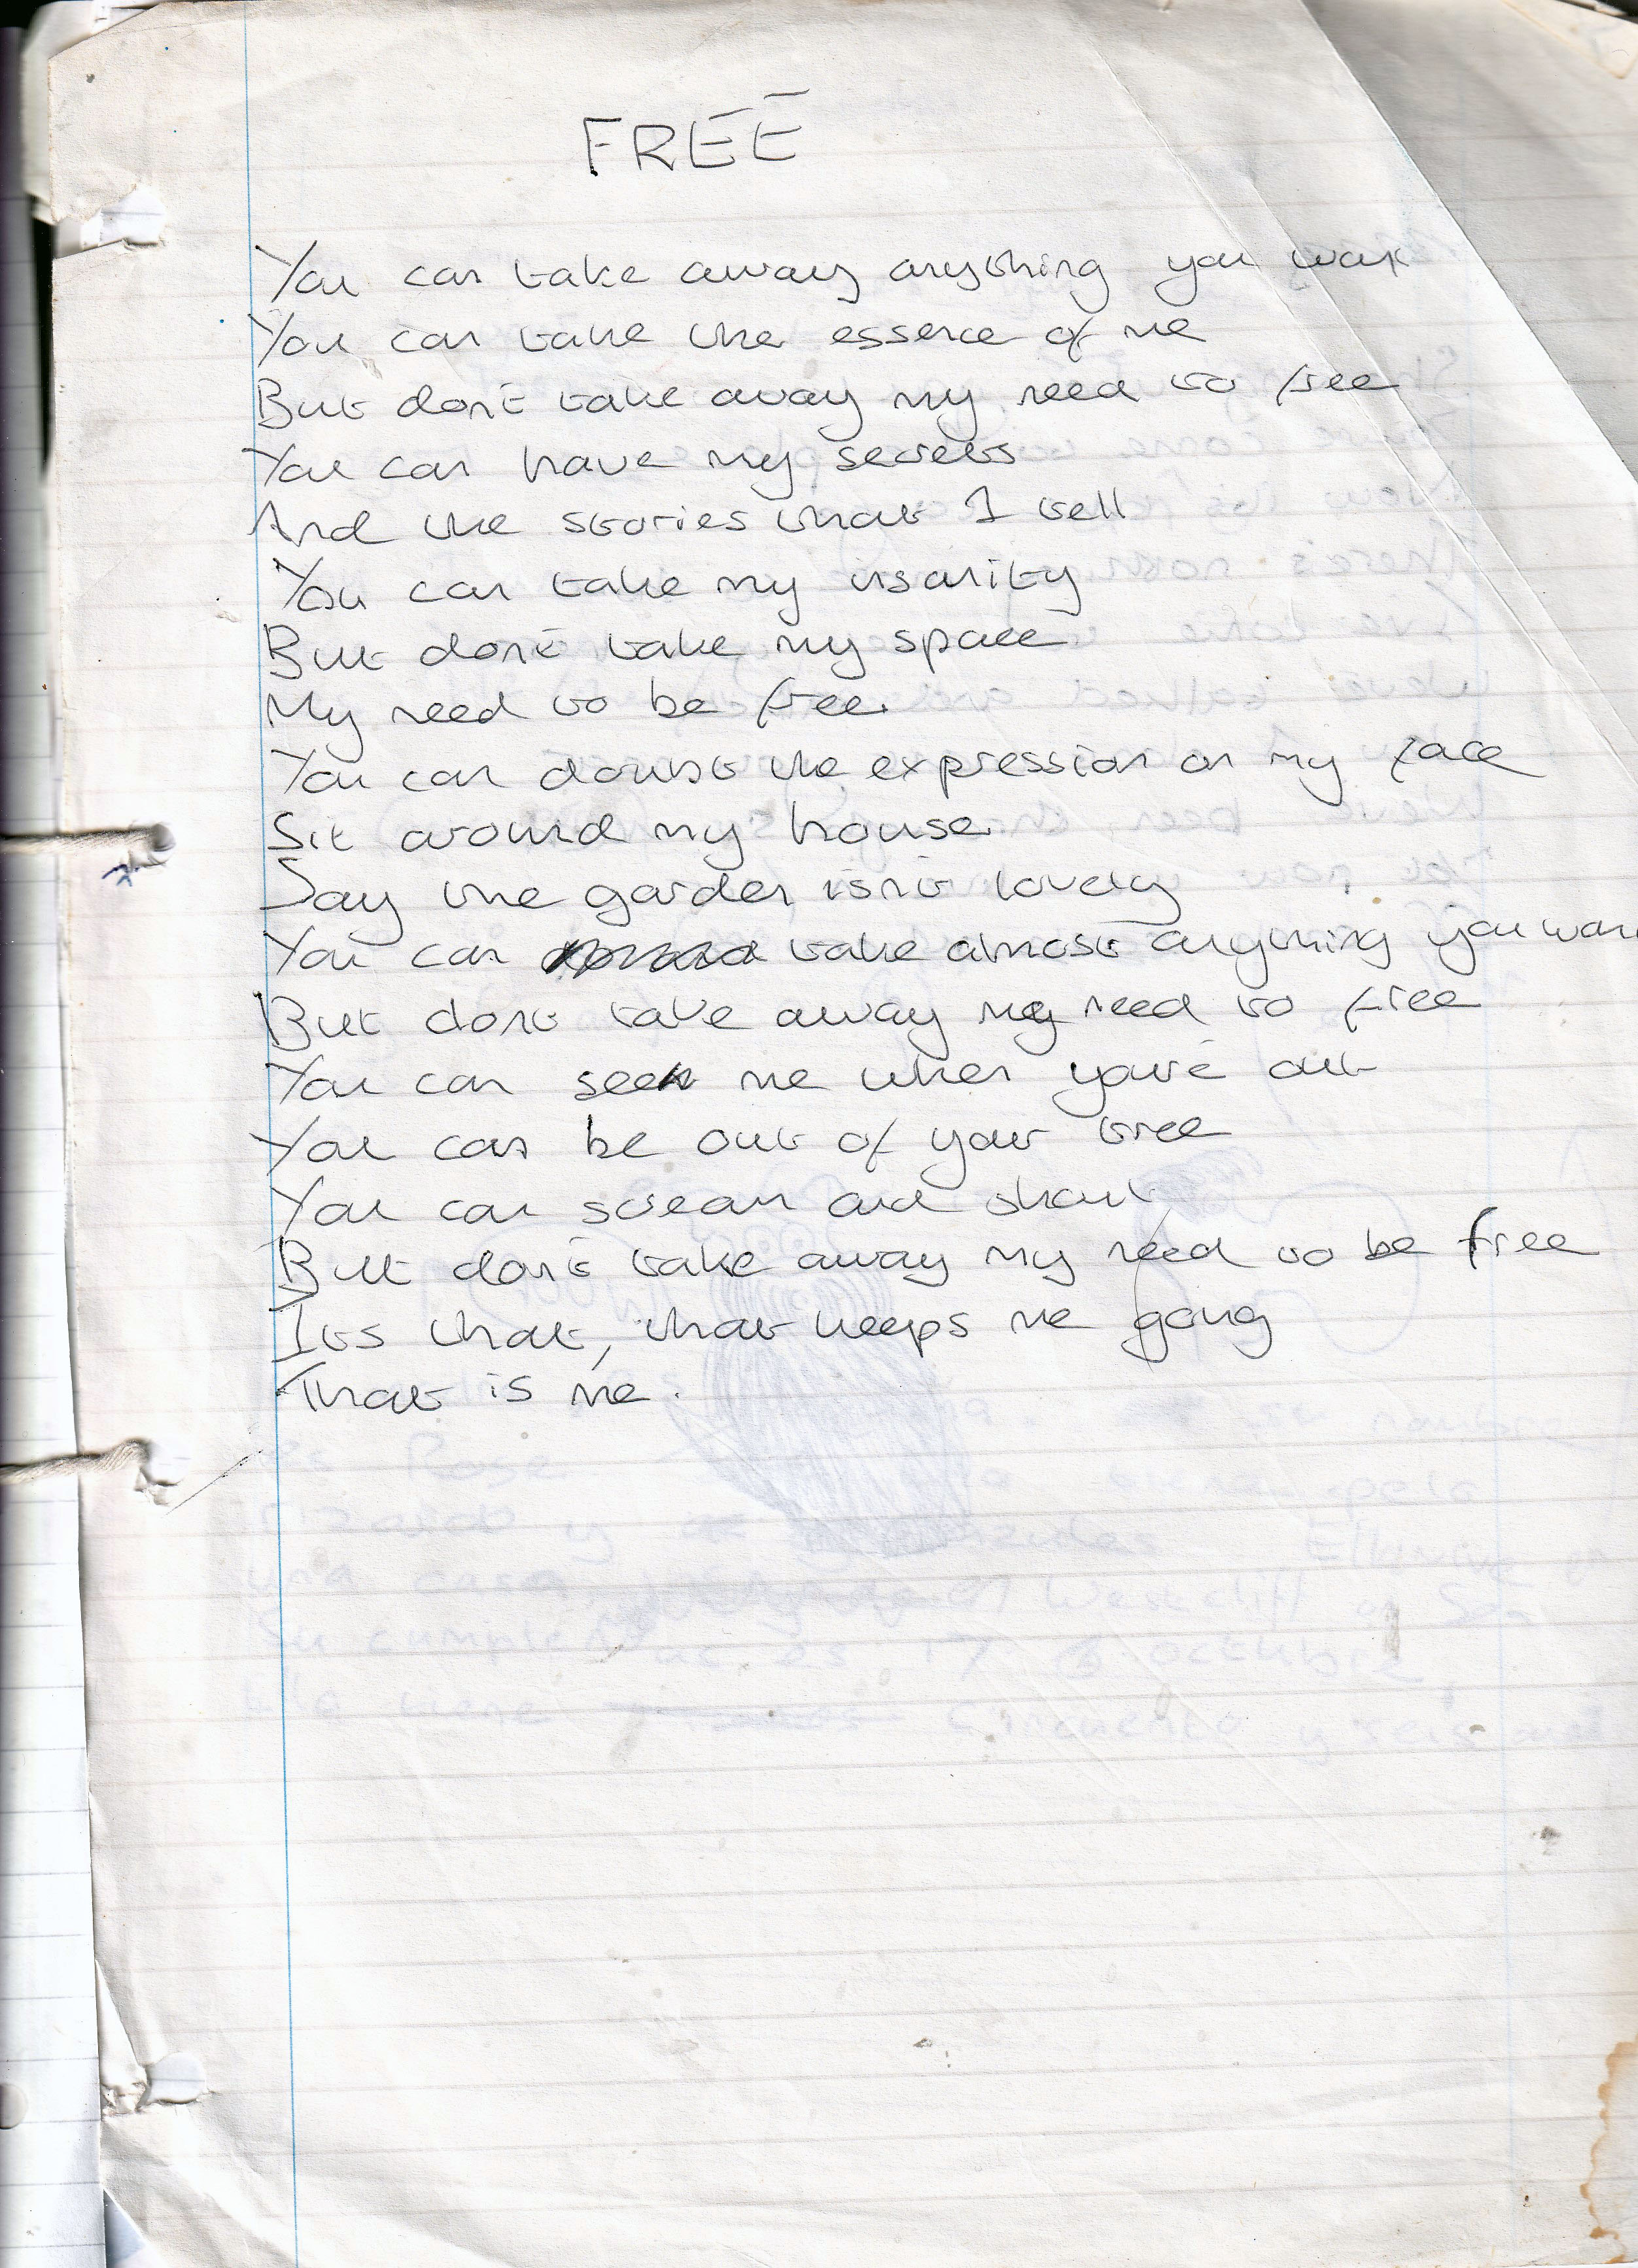 FREE
You can take away anything you want
You can take the essence of me
But don't take away my need to free
You can have my secrets
And the stories that I tell
You can take my insanity
But don't take my space
My need to be free.
You can doubt the expression on my face
Sit around my house
Say the garden isn't lovely
You can take almost anything you wan
But dont take away my need to free
You can seek me when you're out
You can be out of your tree
You can scream and shout
But don't take away my need to be free
Its that, that keeps me going
That is me.